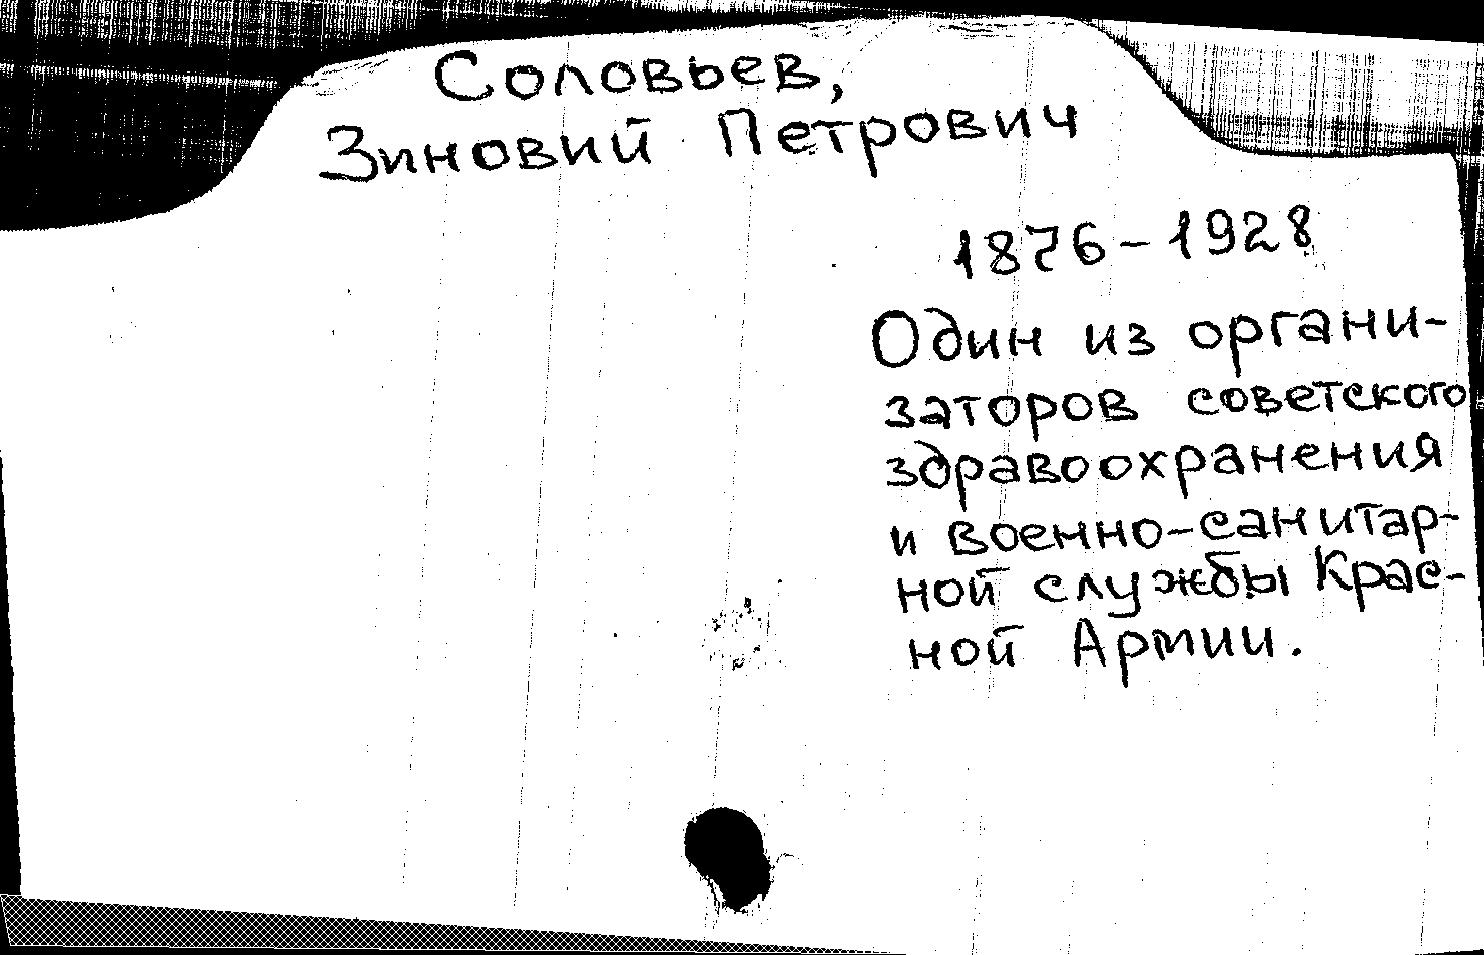 Соловьев,
Зиновий Петрович
1876-1928
Один из органи-
заторов советского
здравоохранения
и военно-санитар-
ной службы Крас-
ной Армии.